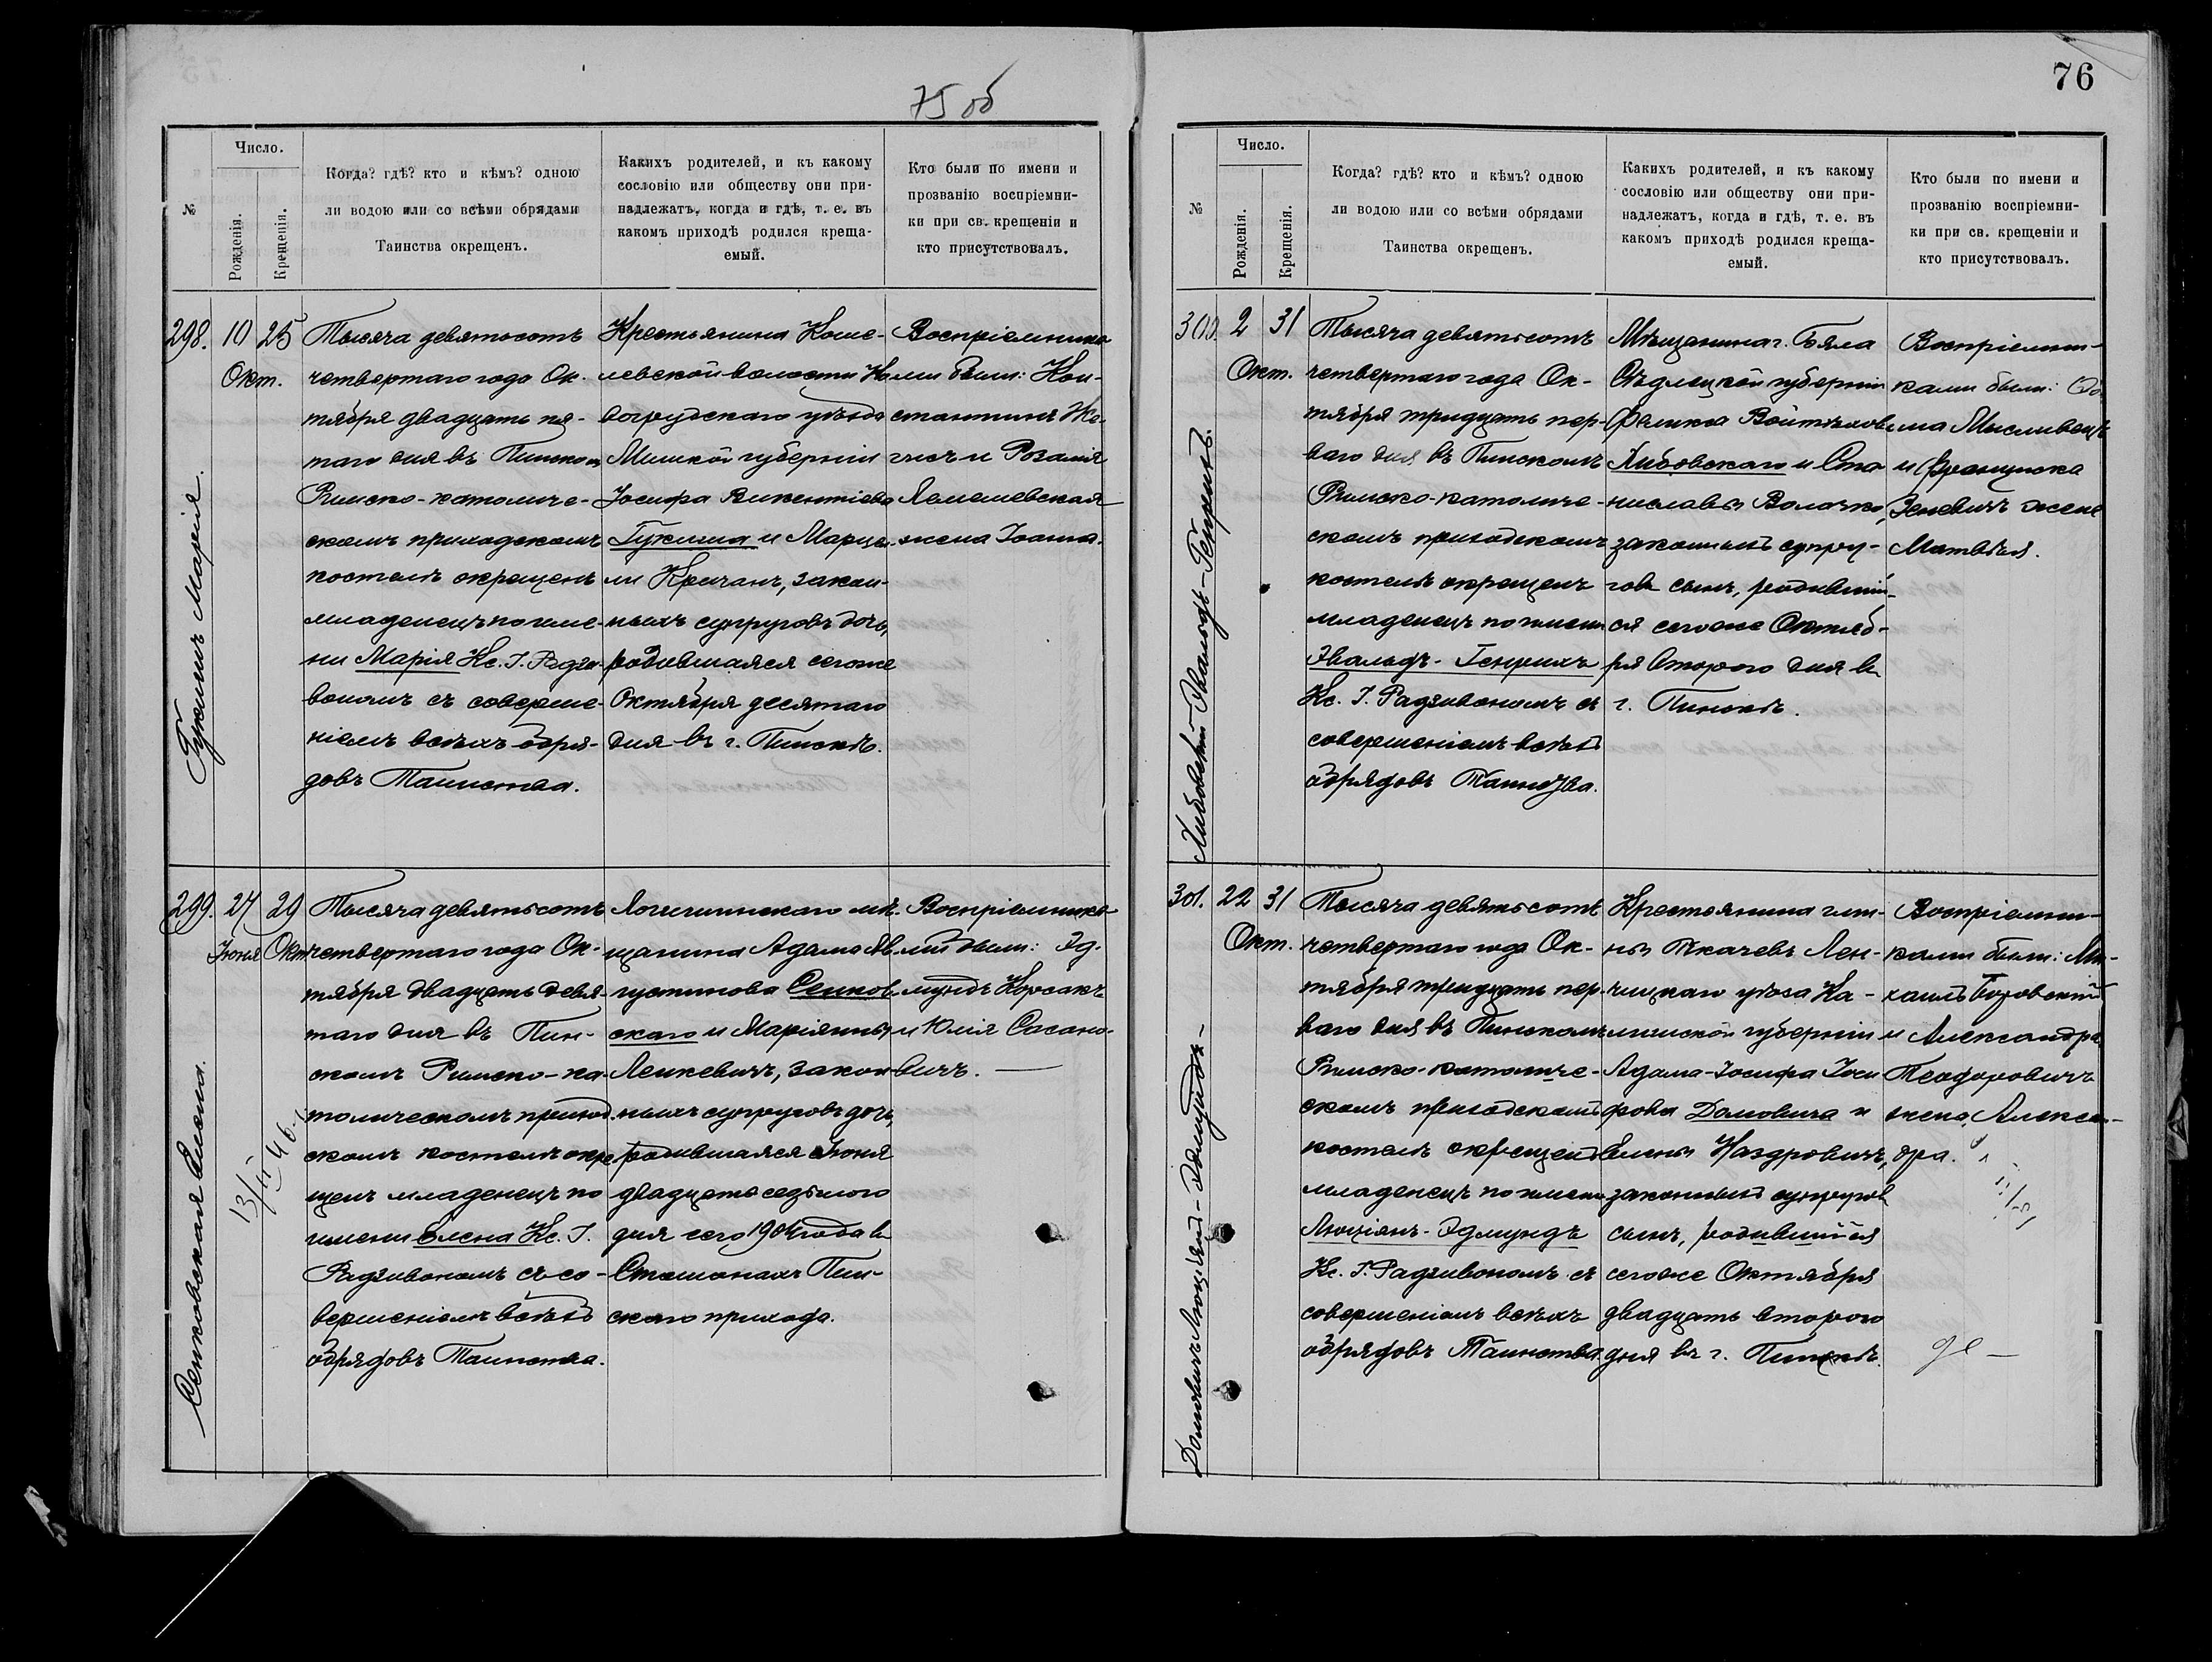 75 об
№
Число.
Рожденія.
Крещенія.
Когда? гдѣ? кто и кѣмъ? одною
ли водою или со всѣми обрядами
Таинства окрещенъ.
Какихъ родителей, и къ какому
сословію или обществу они при-
надлежатъ, когда и гдѣ, т. е. въ
какомъ приходѣ родился креща-
емый.
Кто были по имени и
прозванію воспріемни-
ки при св. крещеніи и
кто присутствовалъ.
298.
10
Окт.
25
Марія
Тысяча девятьсотъ
четвертаго года Ок-
тября двадцать пя-
таго дня въ Пинском
Римско-католиче-
скомъ приходскомъ
костелѣ окрещенъ
младенецъ по име-
ни Марія Кс. І. Радзи-
вономъ съ соверше-
ніемъ всѣхъ обря-
довъ Таинства.
Крестьянина Коше-
левской волости Но-
вогрудскаго уѣзда
Минской губерніи
Іосифа Викентіева
и Марце-
ли Кречанъ, закон-
ныхъ супруговъ дочь,
родившаяся сегоже
Октября десятаго
дня въ г. Пинскѣ.
Воспріемника-
ми были: Кон-
стантинъ
и Розалія
Лемешевская
жена Іоанна.
299.
27
Іюня
29
Окт.
Сенковская Елена.
13/II 46
Тысяча девятьсотъ
четвертаго года Ок-
тября двадцать девя-
таго дня въ Пин-
скомъ Римско-ка-
толическомъ приход-
скомъ костелѣ окре-
щенъ младенецъ по
имени Елена Кс. І.
Радзивономъ съ со-
вершеніемъ всѣхъ
обрядовъ Таинства.
Логишинскаго мѣ-
щанина Адама Ав-
густинова Сенков-
скаго и Маріянны
Ленкевичъ, закон-
ныхъ супруговъ дочь,
родившаяся Іюня
двадцать седьмого
дня сего 1904 года въ
Стошонахъ Пин-
скаго прихода.
Воспріемника-
ми были: Эд-
мундъ Корсакъ
и Юлія Сасано-
вичъ.
76
№
Число.
Рожденія.
Крещенія.
Когда? гдѣ? кто и кѣмъ? одною
ли водою или со всѣми обрядами
Таинства окрещенъ.
Какихъ родителей, и къ какому
сословію или обществу они при-
надлежатъ, когда и гдѣ, т. е. въ
какомъ приходѣ родился креща-
емый.
Кто были по имени и
прозванію воспріемни-
ки при св. крещеніи и
кто присутствовалъ.
300.
2
Окт.
31
Тысяча девятьсотъ
четвертаго года Ок-
тября тридцать пер-
ваго дня въ Пинскомъ
Римско-католиче-
скомъ приходскомъ
костелѣ окрещенъ
младенецъ по имени
Эвальдъ-Генрихъ
Кс. І. Радзивономъ съ
совершеніемъ всѣхъ
обрядовъ Таинства.
Мѣщанина г. Бяла
Сѣдлецкой губерніи
Феликса Войтѣхова
и Ста-
ниславы Волочко,
законныхъ супру-
говъ сынъ, родившій-
ся сегоже Октяб-
ря второго дня въ
г. Пинскѣ.
Воспріемни-
ками были:
Мысливецъ
и Франциска
Зеневичъ жена
Матвѣя.
301.
22
Окт.
31
Тысяча девятьсотъ
четвертаго года Ок-
тября тридцать пер-
ваго дня въ Пинскомъ
Римско-католиче-
скомъ приходскомъ
костелѣ окрещенъ
младенецъ по имени
Люціянъ-Эдмундъ
Кс. І. Радзивономъ съ
совершеніемъ всѣхъ
обрядовъ Таинства.
Крестьянина гми-
ны Ткачевъ Лен-
чицкаго уѣзда Ка-
лишской губерніи
Адама-Іосифа Іоси-
фова Домовича и
Елены Наздровичъ,
законныхъ супругов
сынъ, родившійся
сегоже Октября
двадцать второго
дня въ г. Пинскѣ.
Воспріемни-
ками были: Ми-
хаилъ Боровскій
и Александра
Теодоровичъ
жена Алексан-
дра.